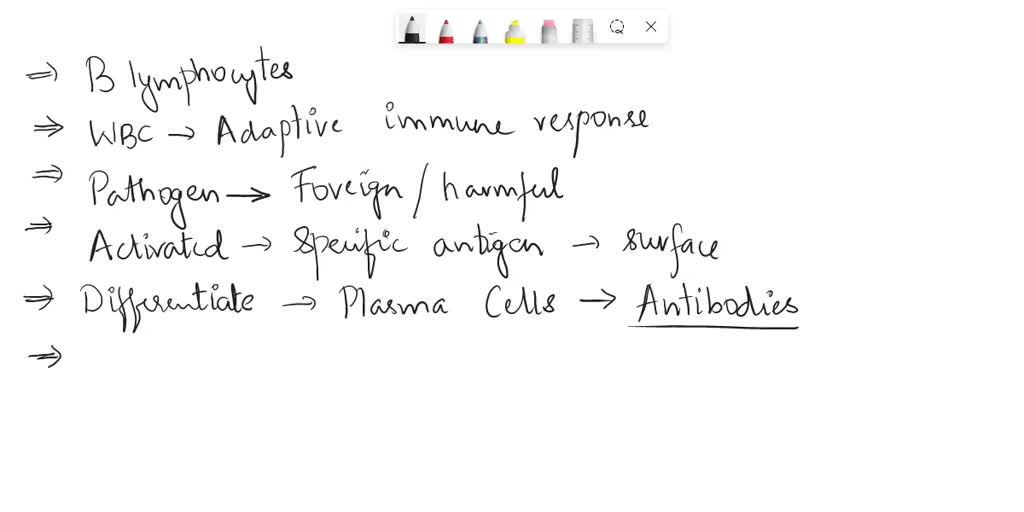 ⇒ B lymphocytes
⇒ WBC → Adaptive immune response
⇒ Pathogen → Foreign / harmful
⇒ Activated → Specific antigen → surface
⇒ Differentiate → Plasma Cells → Antibodies
⇒